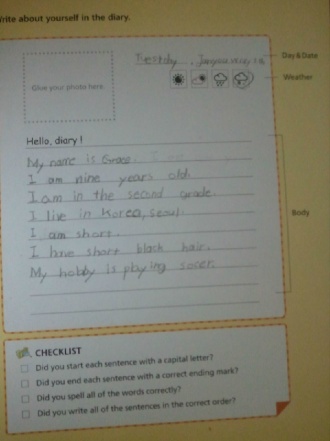 Write about yourself in the diary.
Day&Date
Give your photo here
Weather
Hello, diary !
My name is Grace.
I am nine years old.
I am in the second grade.
I live in Korea, seoul.
I am short.
I have short black hair.
My hobby is playing socer.
Body
CHECKLIST
Did you start each sentence with a capital letter?
Did you end each sentence with a correct ending mark?
Did you spell all of the words correctly?
Did you write all of the sentences in the correct order?